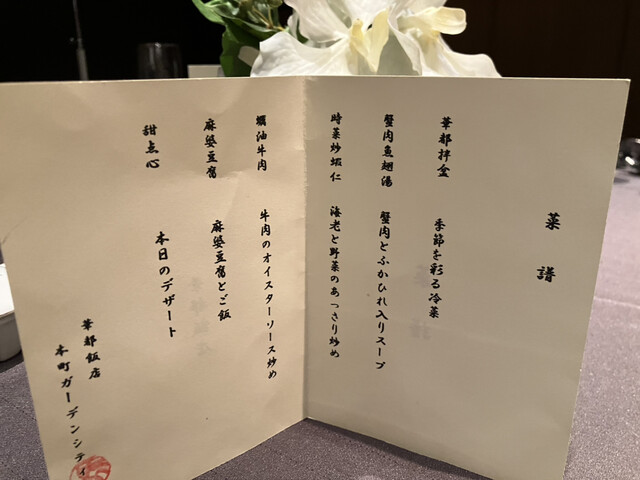 菜譜
華都拌盆 季節を彩る冷菜
蟹肉魚翅湯 蟹肉とふかひれ入りスープ
時菜炒蝦仁 海老と野菜のあっさり炒め
蠣油牛肉 牛肉のオイスターソース炒め
麻婆豆腐 麻婆豆腐とご飯
甜点心 本日のデザート
華都飯店
本町ガーデンシティ